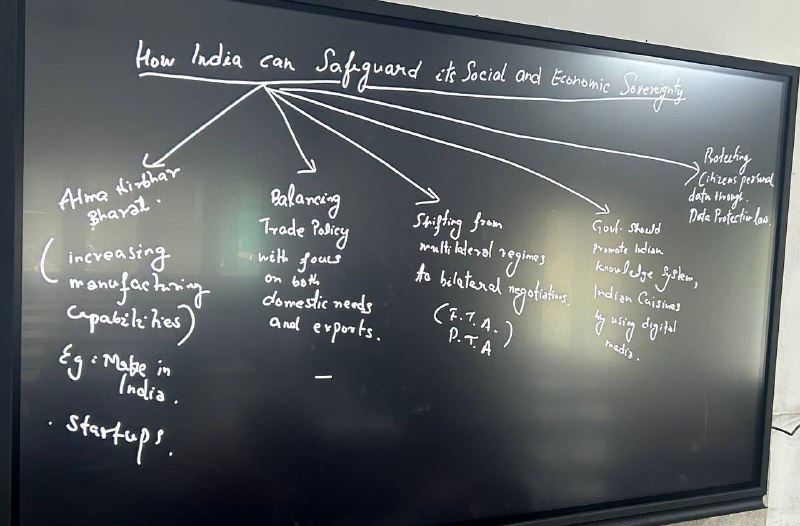 How India can Safeguard its Social and Economic Sovereignty
Atma Nirbhar
Bharat.
(increasing
manufacturing
capabilities)
Eg: Make in
India.
. Startups.
Balancing
Trade Policy
with focus
on both
domestic needs
and exports.
Shifting from
multilateral regimes
to bilateral negotiations.
(F.T.A.
P.T.A)
Govt. should
promote Indian
knowledge System,
Indian Cuisines
by using digital
media.
Protecting
Citizens personal
data through
Data Protection law.